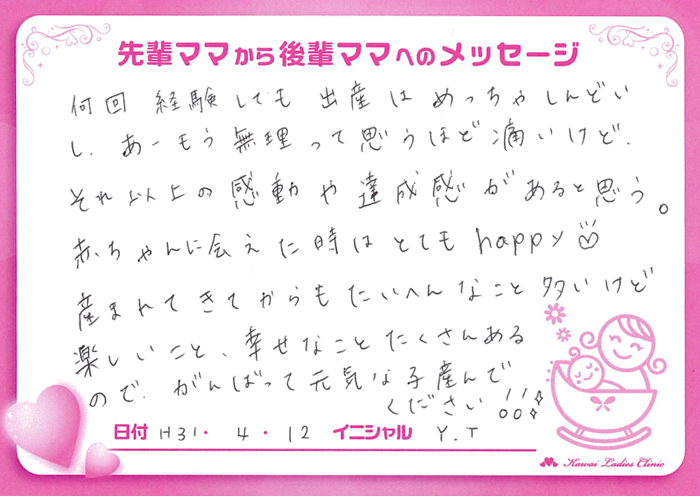 先輩ママから後輩ママへのメッセージ
何回 経験しても 出産は めっちゃしんどい
し、あーもう無理って思うほど痛いけど、
それ以上の感動や達成感があると思う。
赤ちゃんに会えた時はとても happy
産まれてきてからもたいへんなこと多いけど
楽しいこと、幸せなことたくさんある
ので、がんばって元気な子産んで
ください!!
日付 H31・4・12 イニシャル Y.T
Kawai Ladies Clinic